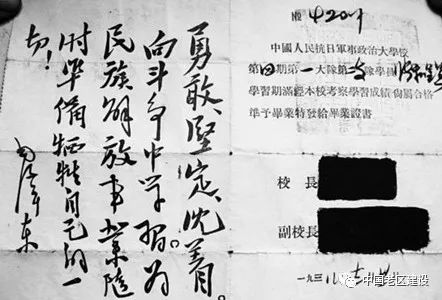 勇敢、堅定、沈着。
向斗争中学習。为
民族解放事業随
时準備牺牲自己的一
切！
毛澤東
中國人民抗日軍事政治大學校
第四期第一大隊第 隊學員
學習期滿經本校考察學習成績尚屬合格
準予畢業特發給畢業證書
校長
副校長
一九三八
中国老区建设